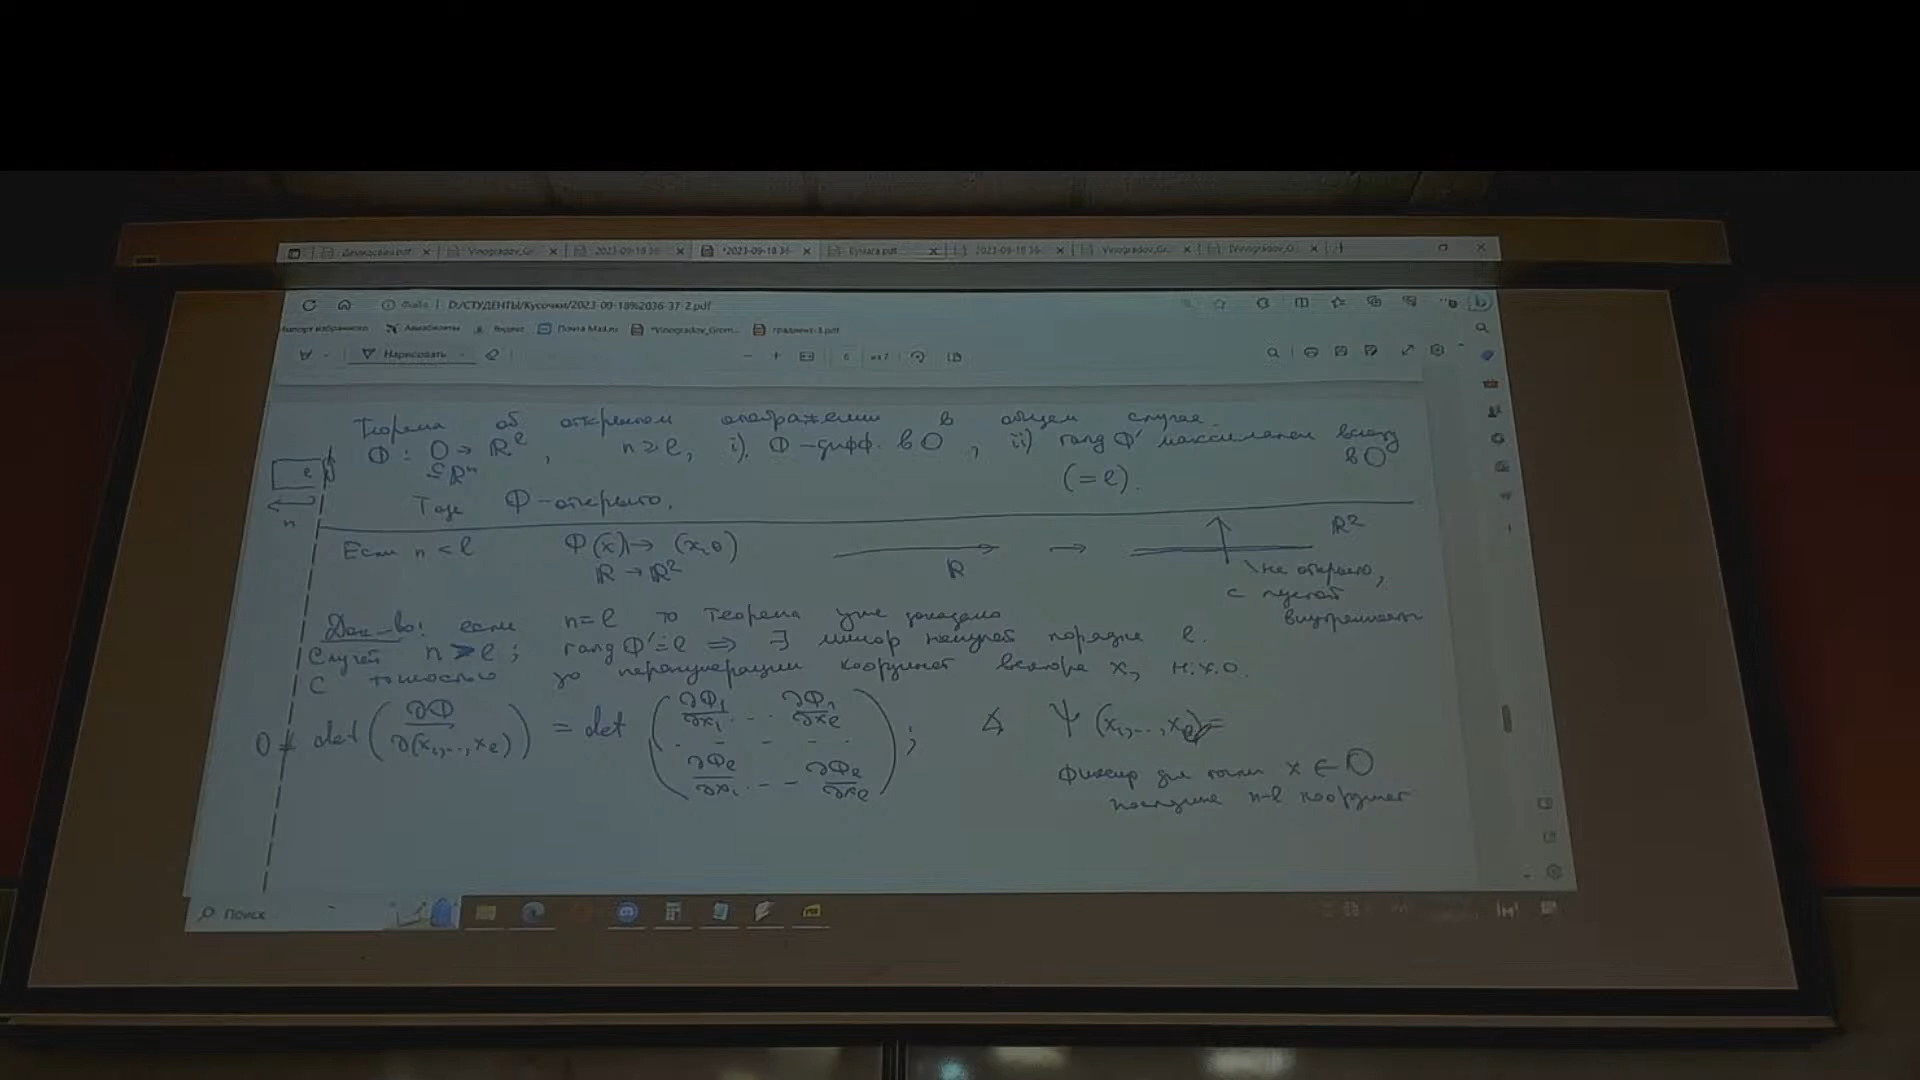 Декасвам.pdf × Vinogradov_Gr... × 2023-09-18 36- × *2023-09-18 36- × Бумага.pdf × 2023-09-18 36- × Vinogradov_Gr... × [Vinogradov_G... ×
Файл | D:/СТУДЕНТЫ/Кусочки/2023-09-18%2036-37-2.pdf
Импорт избранного Авиабилеты Яндекс Почта Mail.ru *Vinogradov_Grom... градиент-3.pdf
Нарисовать 6 из 7
Теорема об открытом отображении в общем случае.
Φ : O → ℝ^l, n ≥ l, i). Φ – дифф. в O, ii) rang Φ' максимален всюду
⊆ ℝ^n (= l). в O
l
n
Тогда Φ – открыто.
Если n < l Φ(x) → (x,0) ℝ → ℝ²
ℝ → ℝ² не открыто,
с пустой
внутренностью
Док-во: если n = l то теорема уже доказана
Случай n > l; rang Φ' = l ⇒ ∃ минор порядка l.
С точностью до перенумерации координат вектора x, н.у.о.
0 ≠ det (∂Φ / ∂(x₁,..,x_l)) = det (∂Φ₁/∂x₁ ... ∂Φ₁/∂x_l - - - - ∂Φ_l/∂x₁ - - ∂Φ_l/∂x_l); Ψ(x₁,...,x_l) =
Фиксир для точки x ∈ O
последние n-l координат
Поиск